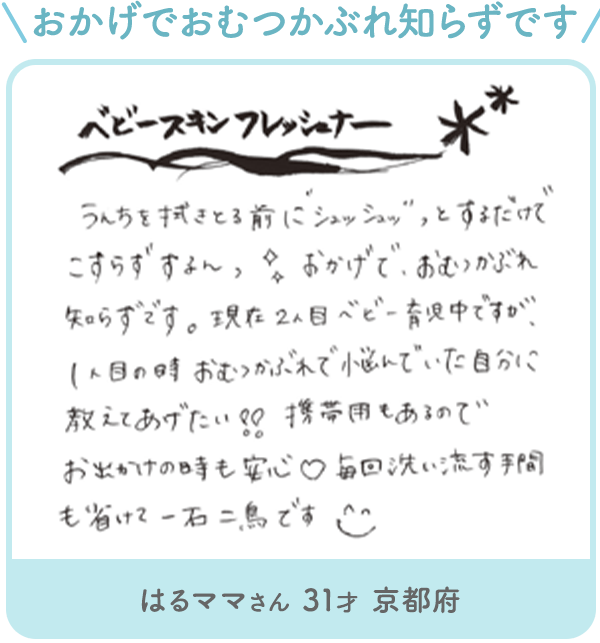 おかげでおむつかぶれ知らずです
ベビースキンフレッシュナー
うんちを拭きとる前に"シュッシュッ"っとするだけで
こすらずするんっ おかげで、おむつかぶれ
知らずです。現在2人目ベビー育児中ですが、
1人目の時おむつかぶれで悩んでいた自分に
教えてあげたい!! 携帯用もあるので
お出かけの時も安心♡毎回洗い流す手間
も省けて一石二鳥です
はるママさん 31才 京都府